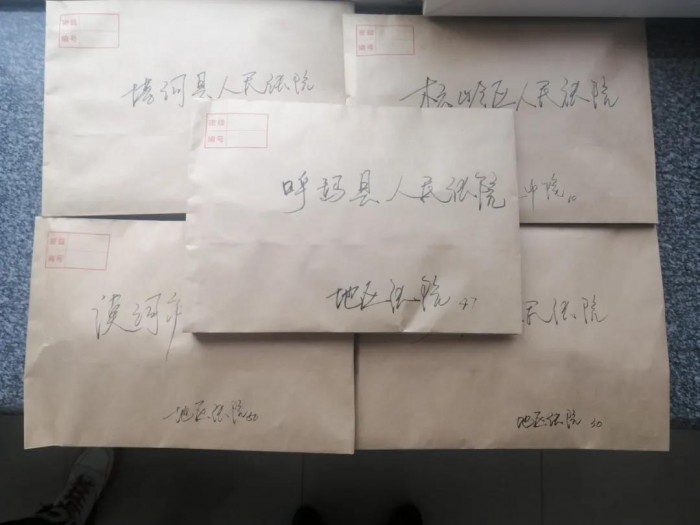 密级
编号
塔河县人民法院
密级
编号
松岭区人民法院
密级
编号
呼玛县人民法院 中院。
地区法院
密级
编号
漠河市
地区法院
民法院
地区法院 30